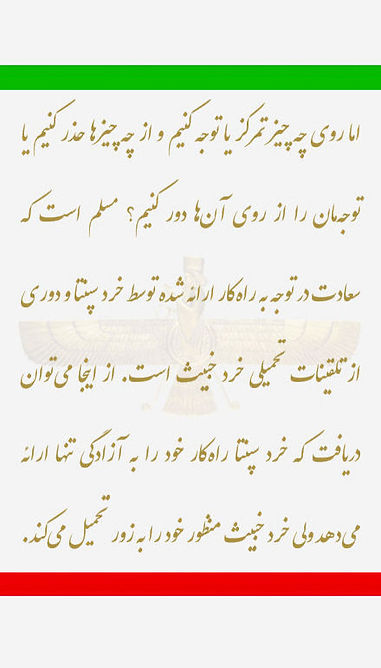 اما روی چه چیز تمرکز یا توجه کنیم و از چه چیزها حذر کنیم یا
توجه‌مان را از روی آن‌ها دور کنیم؟ مسلم است که
سعادت در توجه به راه‌کار ارائه شده توسط خرد سپنتا و دوری
از تلقینات تحمیلی خرد خبیث است. از اینجا می‌توان
دریافت که خرد سپنتا راه‌کار خود را به آزادگی تنها ارائه
می‌دهد ولی خرد خبیث منظور خود را به زور تحمیل می‌کند.